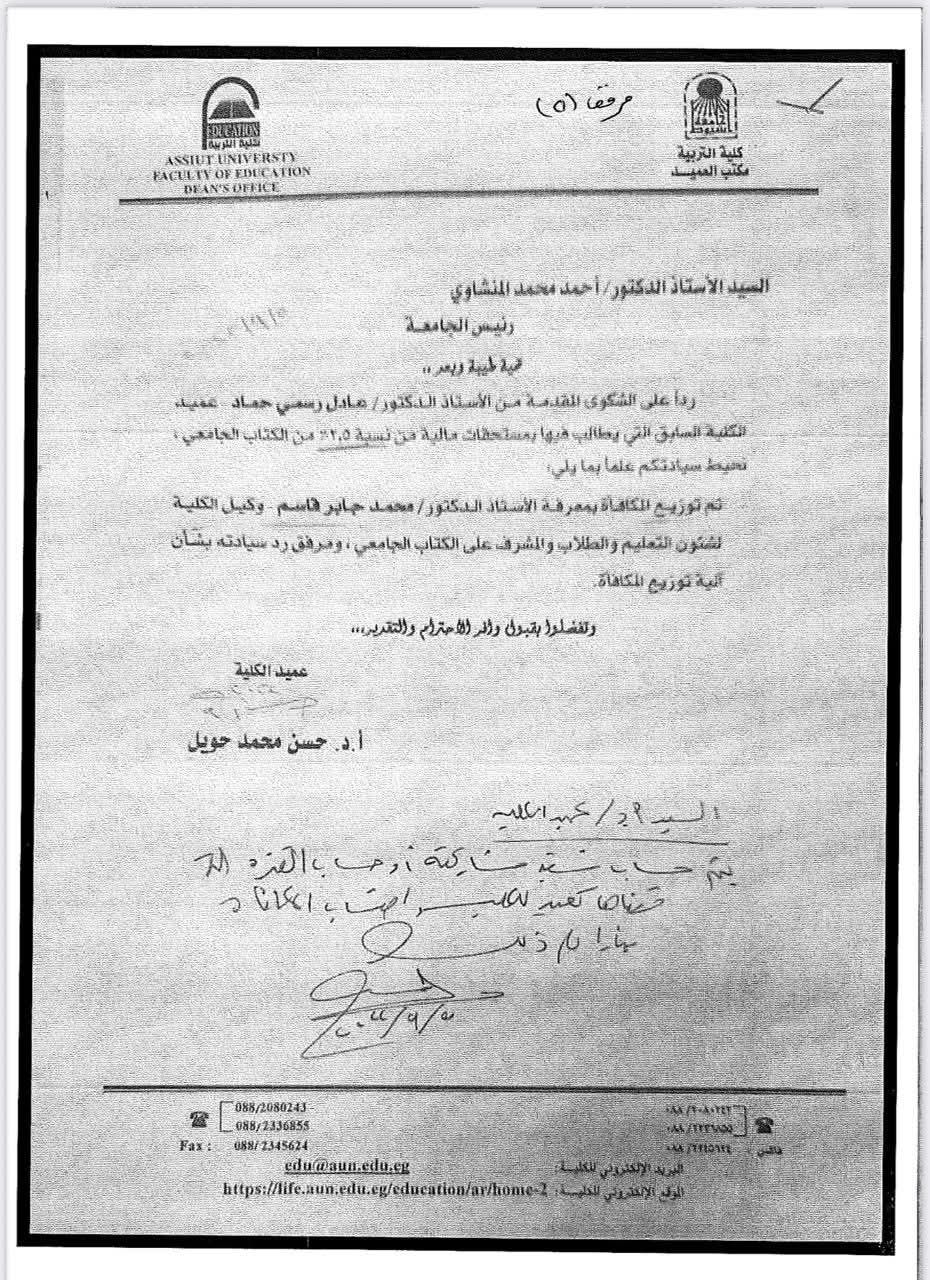 مرفق (٥)
جامعة أسيوط
كلية التربية
مكتب العميد
EDUCATION
كلية التربية
ASSIUT UNIVERSTY
FACULTY OF EDUCATION
DEAN'S OFFICE
السيد الأستاذ الدكتور/ أحمد محمد المنشاوي
رئيس الجامعة
تحية طيبة وبعد ،،
رداً على الشكوى المقدمة من الأستاذ الدكتور/ عادل رسمي حماد عميد
الكلية السابق التي يطالب فيها بمستحقات مالية من نسبة ٢,٥٪ من الكتاب الجامعي ،
نحيط سيادتكم علماً بما يلي:
تم توزيع المكافأة بمعرفة الأستاذ الدكتور/ محمد جابر قاسم - وكيل الكلية
لشئون التعليم والطلاب والمشرف على الكتاب الجامعي ، ومرفق رد سيادته بشأن
آلية توزيع المكافأة.
وتفضلوا بقبول وافر الاحترام والتقدير،،،
عميد الكلية
أ.د. حسن محمد حويل
السيد أ.د/ عميد الكلية
يتم حساب نسبة مشاركته أو حساب الفترة التي
قضاها كعميد للكلية
بناءا على ذلك
088/2080243 -
088/2336855
Fax : 088/2345624
٠٨٨/٢٠٨٠٢٤٣
٠٨٨/٢٣٣٦٨٥٥
فاكس : ٠٨٨/٢٣٤٥٦٢٤
البريد الإلكتروني للكلية: edu@aun.edu.eg
الموقع الإلكتروني للكلية: https://life.aun.edu.eg/education/ar/home-2